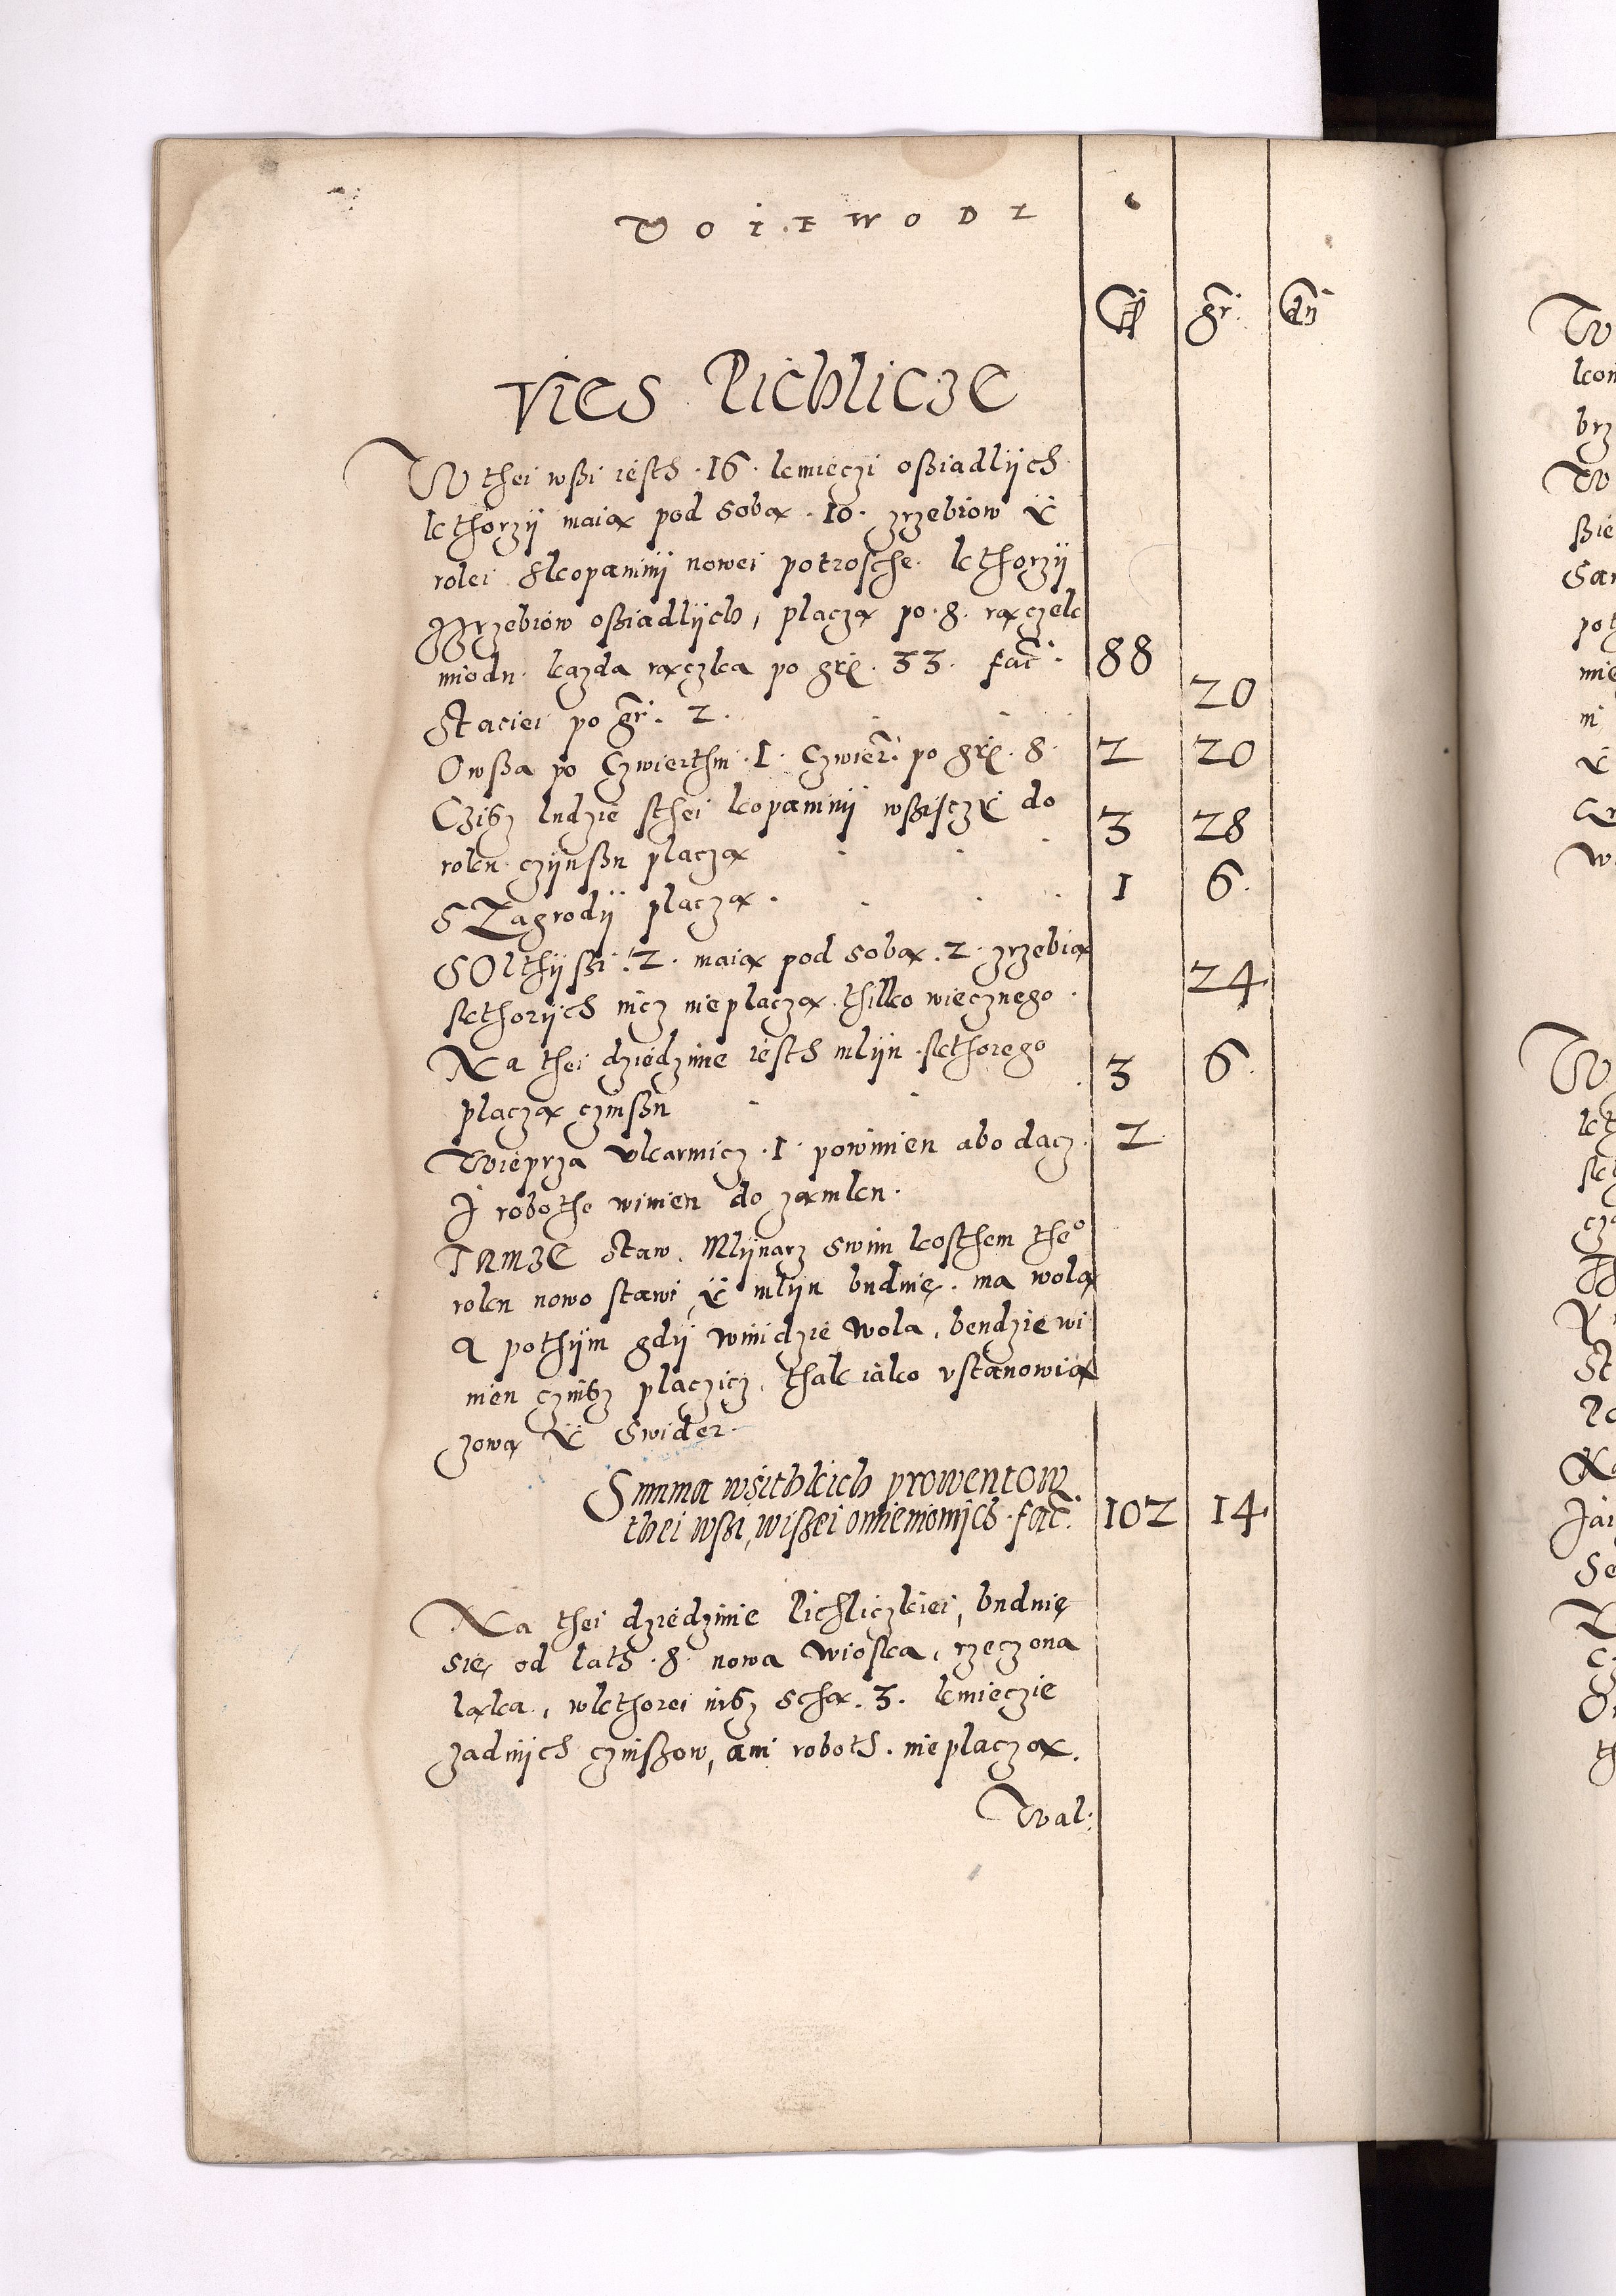 VOIEWODZ
fl gr dn
Vies Lichlicze
W thei wßi iesth .16. kmieczi oßiadlÿch
kthorzÿ maią pod sobą .10. zrzebiow Y
rolei skopaninÿ nowei potrosche. kthorzÿ
Zrzebiow oßiadlÿch, placzą po .8. rączek
miodu. kazda rączka po grß. 33. fac. 88
Staciei po gr. 2. 20
Owßa po Czwierthni .1. Czwier. po grß. 8. 2 20
Cziß ludzie sthei kopaninÿ wßiſczÿ do
rolku czÿnßu placzą 3 28
S Zagrodÿ placzą . 1 6.
SOlthÿßi .2. maią pod sobą .2. zrzebia
skthorÿch nicz nie placzą. thilko wiecznego . 24.
Na thei dziedzinie iesth mlÿn skthorego
placzą czinßu 3 6.
Wieprza vkarmicz .1. powinien abo dacz. 2.
I robothe winien do zamku.
TAMZE Staw. Mlÿnarz swim kosthem the°
roku nowo stawi, Y mlÿn buduię. ma wolą
A pothÿm gdÿ winidzie wola, bendzie wi
nien czinß placzicz, thak iako vstanowią
zową Y Swider.
Summa wsithkich prowentow
thei wßi, wißei omienionÿch. fac. 102 14.
Na thei dziedzinie Lichliczkiei, buduię
się, od lath .8. nowa Wioska, rzeczona
ląka, wkthorei iuß są .3. kmieczie
zadnÿch czinßow, ani roboth. nie placzą.
Wal: